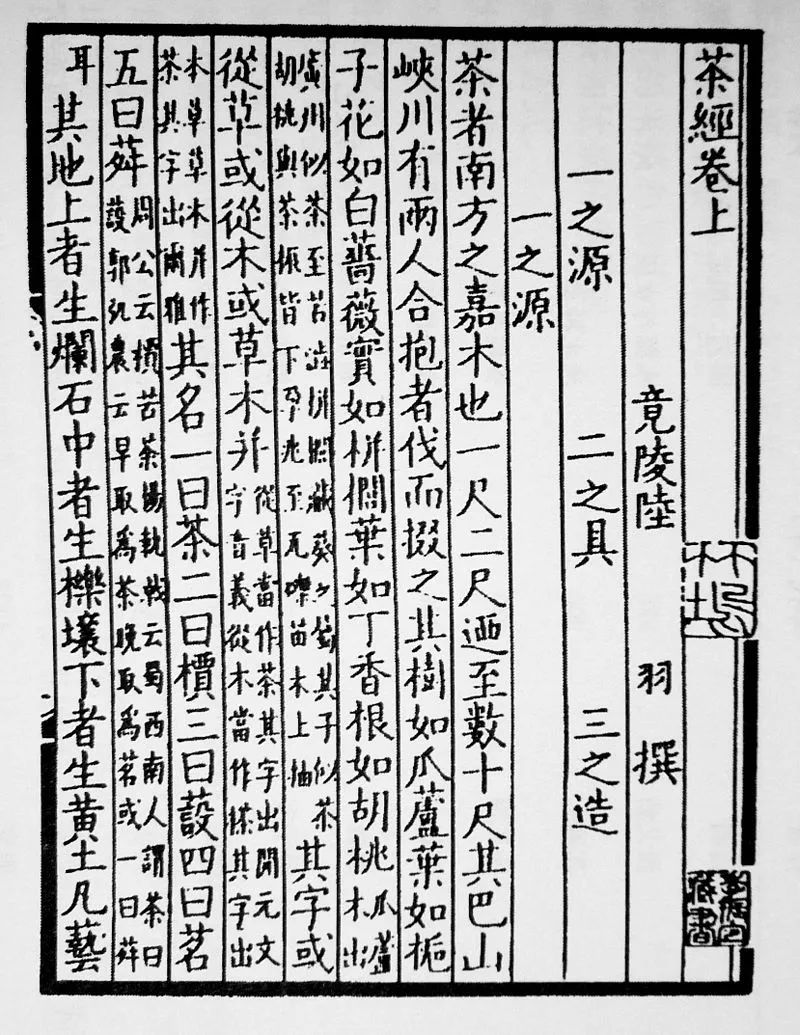 茶經卷上
竟陵陸 羽 撰
一之源 二之具 三之造
一之源
茶者南方之嘉木也一尺二尺迺至數十尺其巴山
峽川有兩人合抱者伐而掇之其樹如瓜蘆葉如梔
子花如白薔薇實如栟櫚葉如丁香根如胡桃瓜蘆木出
廣川似茶至苦澁栟櫚葵之其子似茶胡桃與茶根皆下孕兆至瓦礫苗木上抽其字或
從草或從木或草木并從草當作茶其字出開元文字音義從木當作搽其字出
本草草木并作茶其字出爾雅其名一曰茶二曰檟三曰蔎四曰茗
五曰荈周公云檟苦茶揚執戟云蜀西南人謂茶曰護郭弘農云早取為茶晚取為茗或一曰荈
耳其地上者生爛石中者生櫟壤下者生黃土凡藝